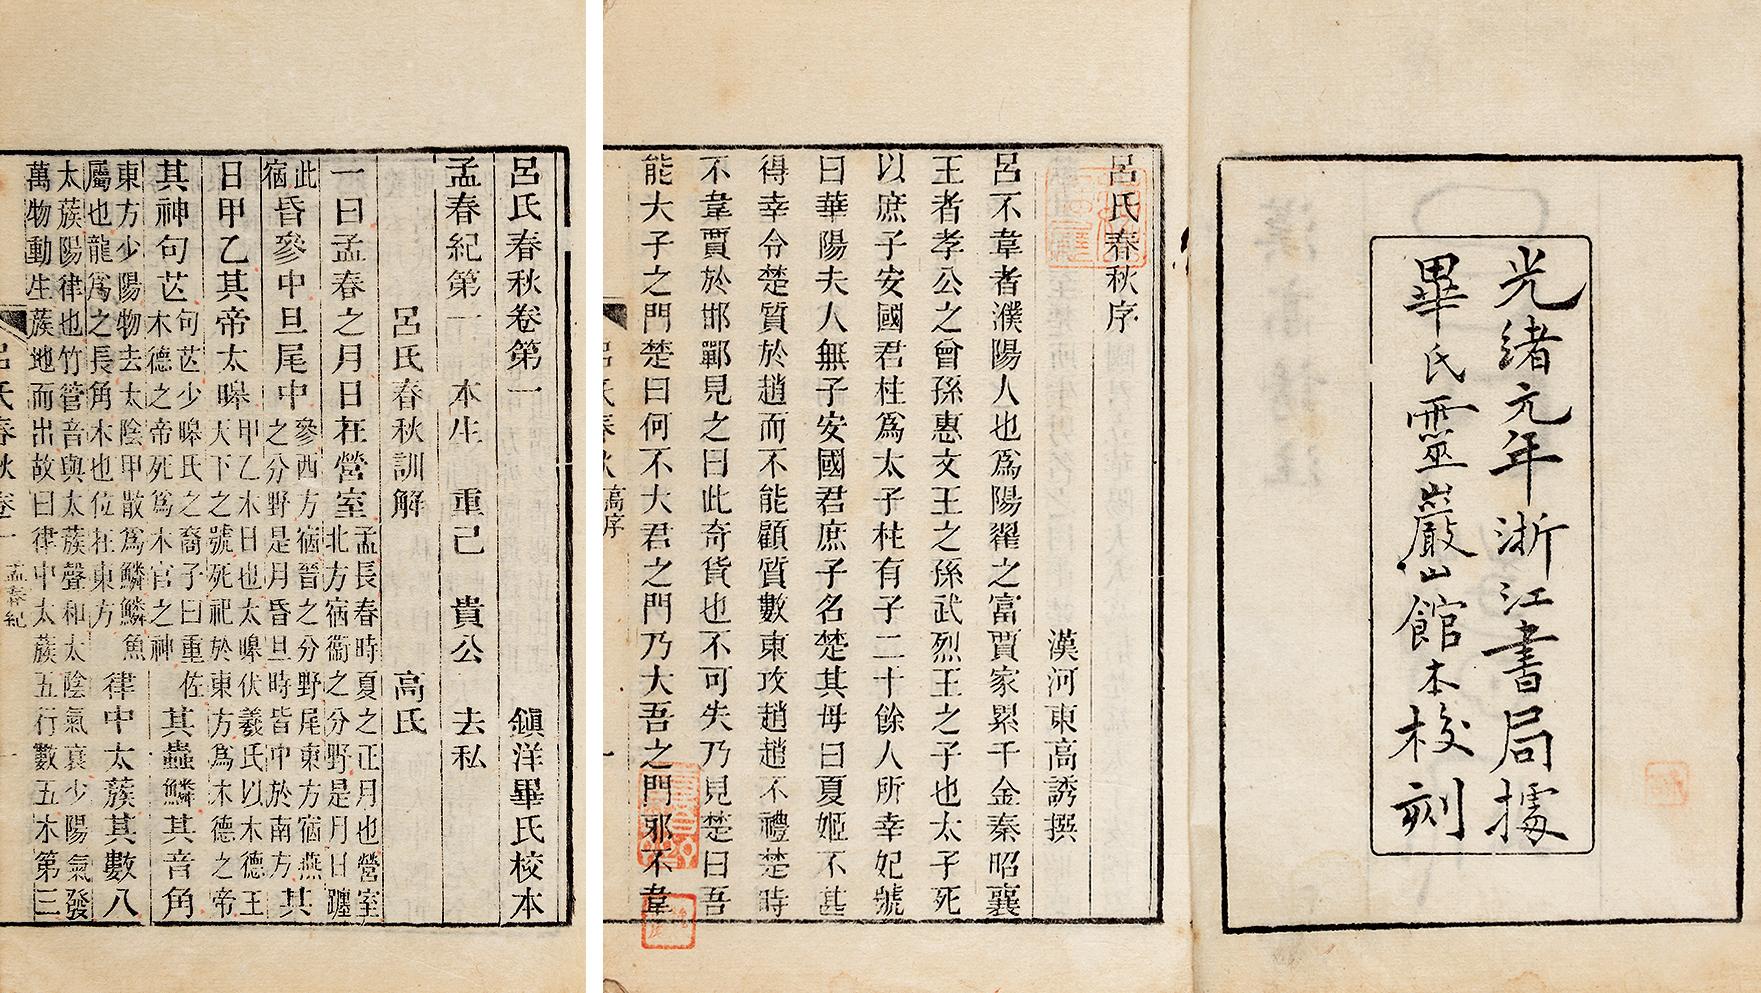 光緒元年浙江書局據
畢氏靈巖山館本校刻
呂氏春秋序
漢河東高誘撰
呂不韋者濮陽人也爲陽翟之富賈家累千金秦昭襄
王者孝公之曾孫惠文王之孫武烈王之子也太子死
以庶子安國君柱爲太子柱有子二十餘人所幸妃號
曰華陽夫人無子安國君庶子名楚其母曰夏姬不甚
得幸令楚質於趙而不能顧質數東攻趙趙不禮楚時
不韋賈於邯鄲見之曰此奇貨也不可失乃見楚曰吾
能大子之門楚曰何不大君之門乃大吾之門邪不韋
呂氏春秋 高序 一
呂氏春秋卷第一 鎭洋畢氏校本
孟春紀第一 本生 重己 貴公 去私
呂氏春秋訓解 高氏
一曰孟春之月日在營室孟長春時夏之正月也營室
北方宿衞之分野是月日躔
此宿昏參中旦尾中參西方宿晉之分野尾東方宿燕
之分野是月昏旦時皆中於南方其
日甲乙其帝太皞甲乙木日也太皞伏羲氏以木德王
天下之號死祀於東方爲木德之帝
其神句芒句芒少皞氏之裔子曰重佐
木德之帝死爲木官之神其蟲鱗其音角
東方少陽物去太陰甲散爲鱗鱗魚
屬也龍爲之長角木也位在東方律中太蔟其數八
太蔟陽律也竹管音與太蔟聲和太陰氣衰少陽氣發
萬物動生蔟地而出故曰律中太蔟五行數五木第三
呂氏春秋卷一 孟春紀 一